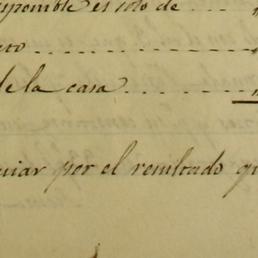 sponible es solo de
de la casa
uiar por el resultado qu